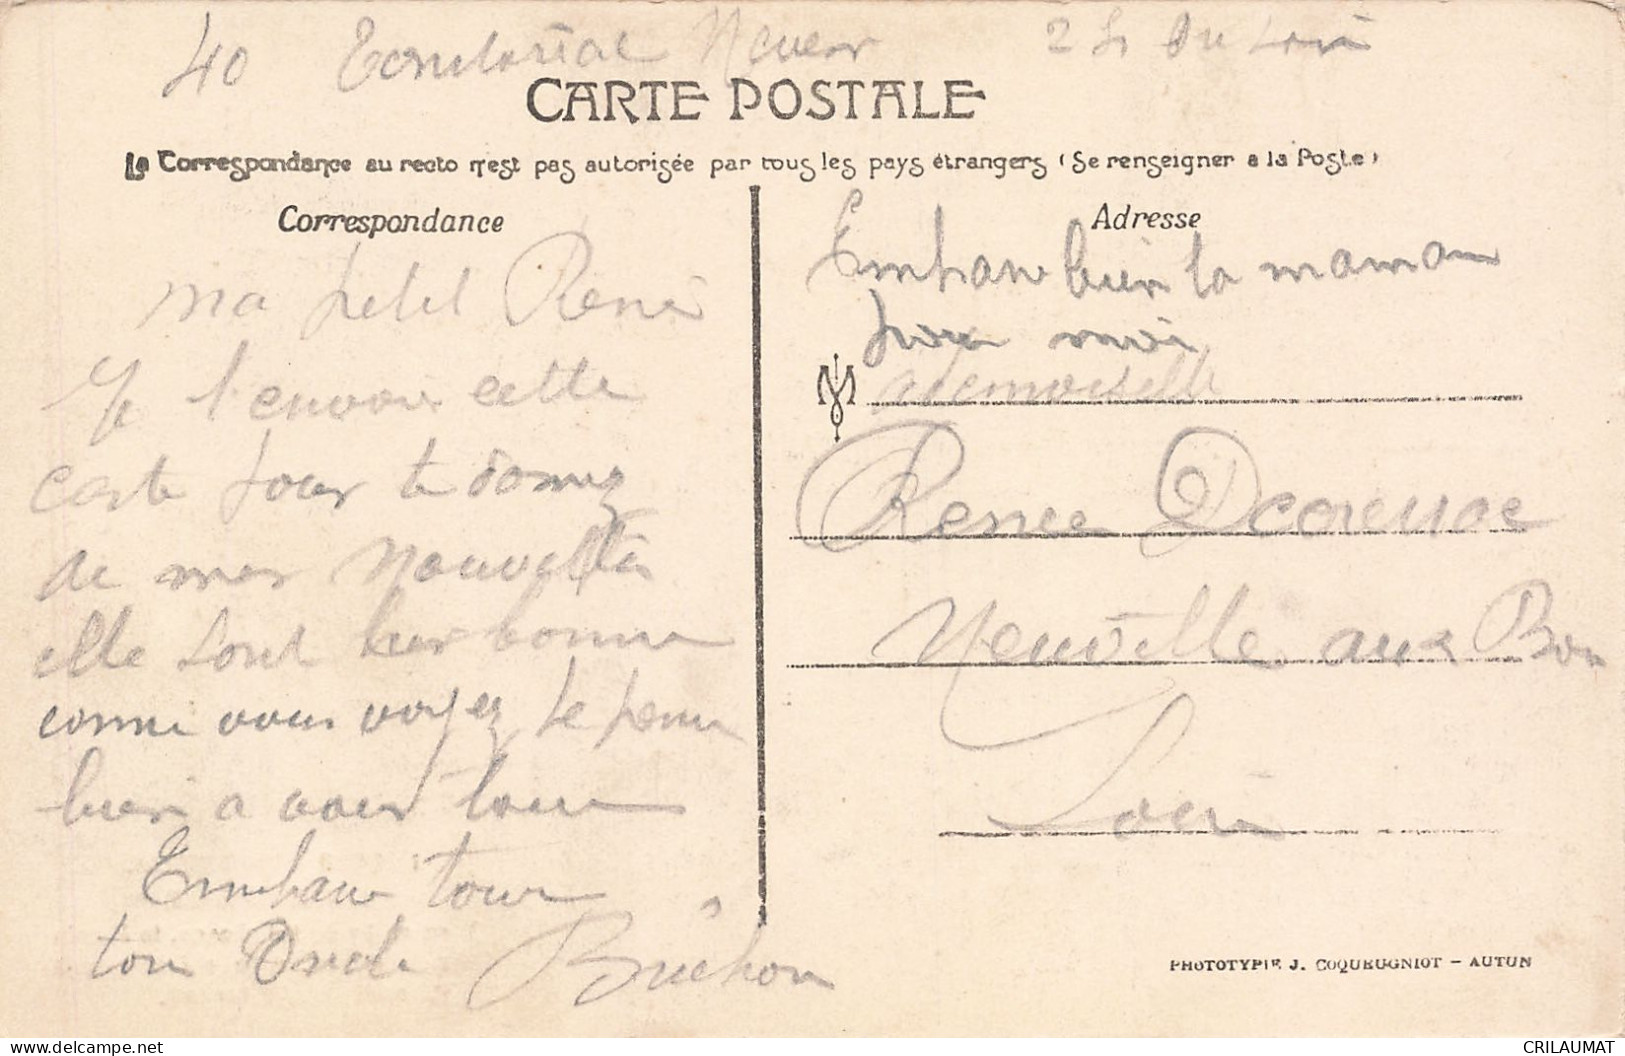 40 Territorial Never
CARTE POSTALE
La Correspondance au recto n'est pas autorisée par tous les pays étrangers (Se renseigner a la Poste)
Correspondance
ma petit René
Je t'envoie cette
carte pour te donnez
de mes nouvelles
elle sont bien bonne
comme vous voyez je pense
bien a vous tous
Embrasse tous
ton Oncle Bûchon
Adresse
Embrasse bien ta maman
pour moi
M ademoiselle
Renee
Neuville aux Bois
Loiret
PHOTOTYPIE J. COQUEUGNIOT - AUTUN
CRILAUMAT